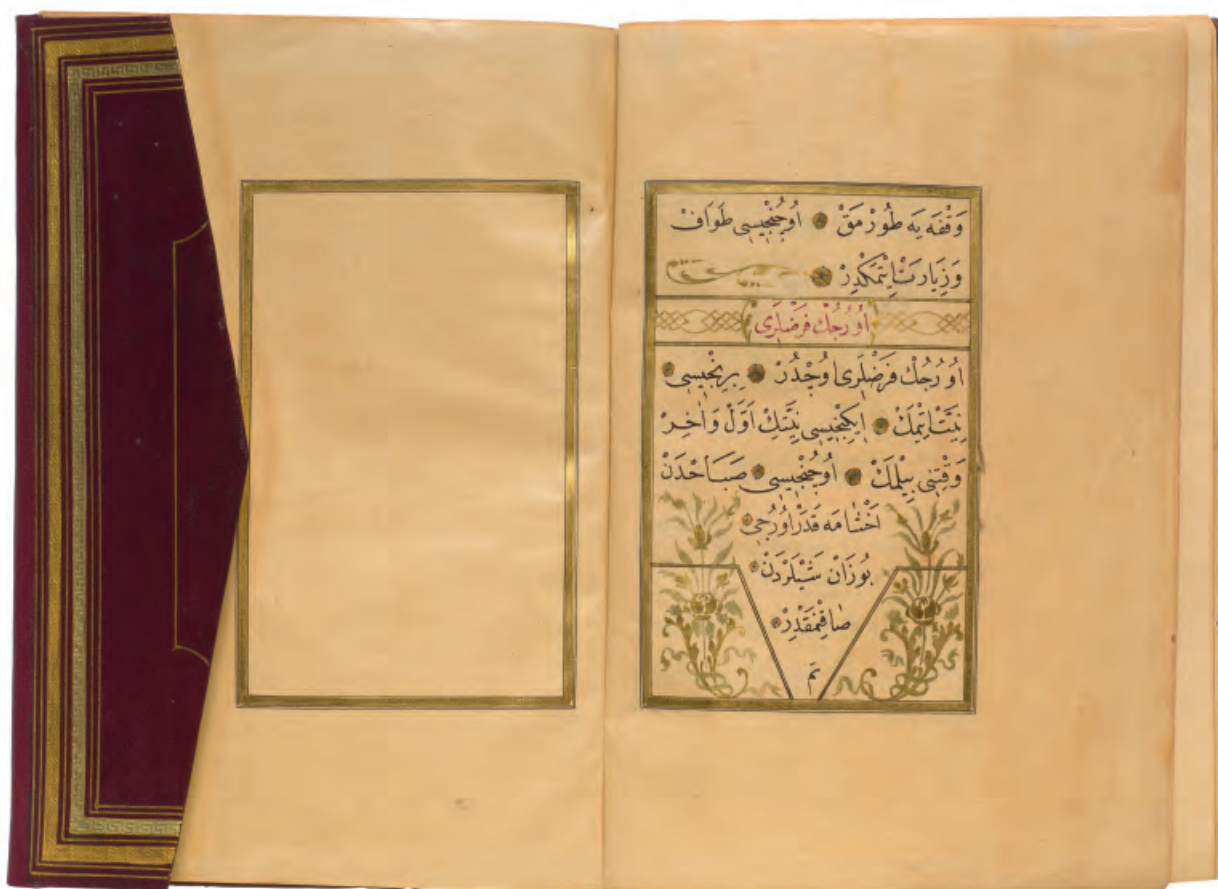 وَقْفَه يَه طُورْمَقْ اُوچُنْجِيسِى طَوَافْ
وَزِيَارَتْ اِيتْمَكْدِرْ
اُورُجُكْ فَرْضْلَرِى
اُورُجُكْ فَرْضْلَرِى اُوچْدُرْ بِرِنْجِيسِى
نِيَّتْ اِتْمَكْ اِيكِنْجِيسِى نِيَّتِكْ اَوَّلْ وَاٰخِرْ
وَقْتِنِى بِيلْمَكْ اُوچُنْجِيسِى صَبَاحْدَنْ
اَخْشَامَه قَدَرْ اُورُجِى
بُوزَانْ شَيْلَرْدَنْ
صَاقِنْمَقْدِرْ
تم